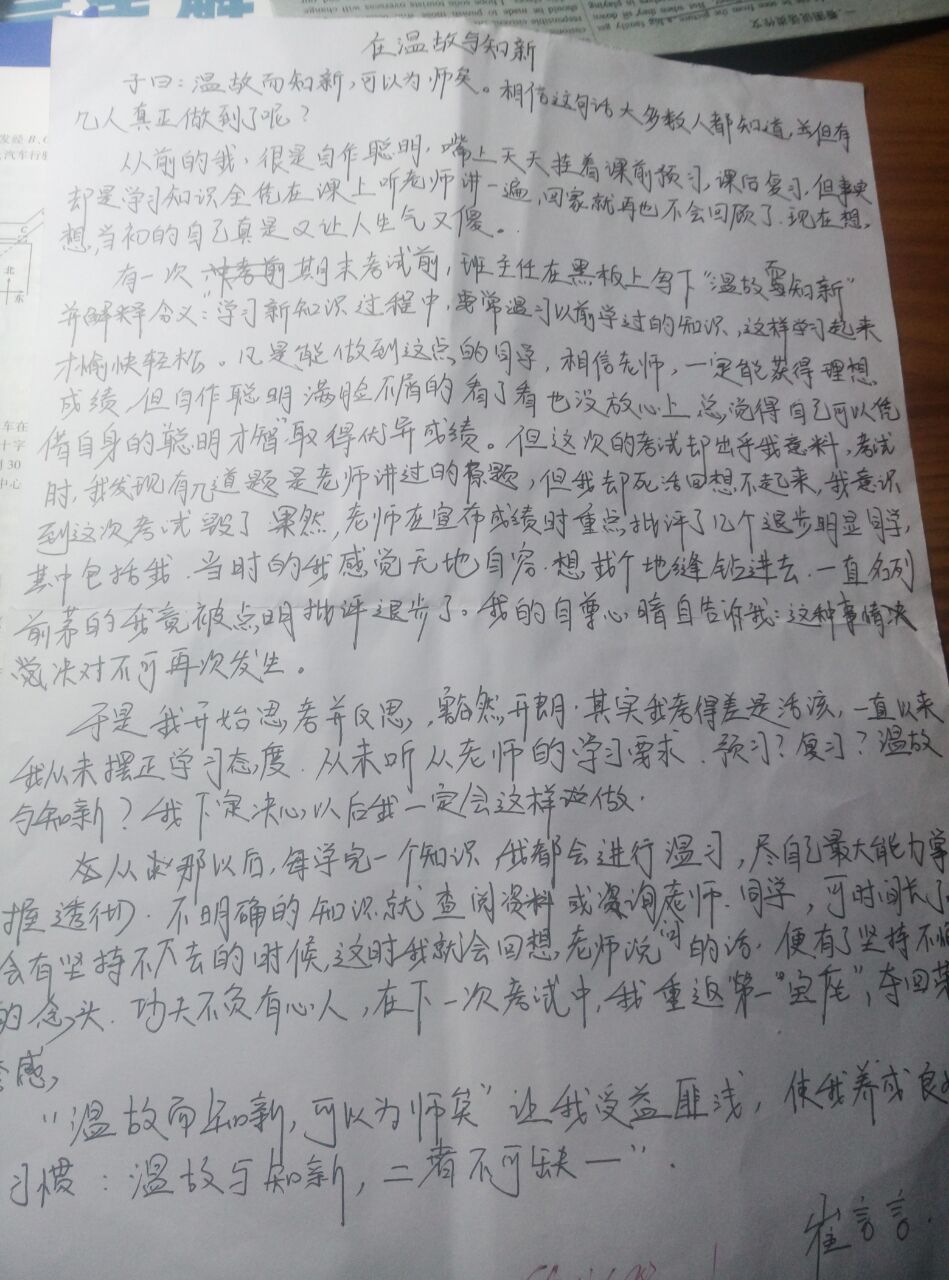 在温故与知新
子曰：温故而知新，可以为师矣。相信这句话大多数人都知道，但有
几人真正做到了呢？
从前的我，很是自作聪明，嘴上天天挂着课前预习，课后复习，但事实
却是学习知识全凭在课上听老师讲一遍，回家就再也不会回顾了．现在想
想，当初的自己真是又让人生气又傻。
有一次期末考试前，班主任在黑板上写下“温故而知新”
并解释含义：“学习新知识过程中，要常温习以前学过的知识，这样学习起来
才愉快轻松。凡是能做到这点的同学，相信老师，一定能获得理想
成绩．但自作聪明满脸不屑的看了看也没放心上，总觉得自己可以凭
借自身的聪明才智”取得优异成绩。但这次的考试却出乎我意料，考试
时，我发现有几道题是老师讲过的原题，但我却死活回想不起来，我意识
到这次考试毁了．果然，老师在宣布成绩时重点批评了几个退步明显同学，
其中包括我．当时的我感觉无地自容．想找个地缝钻进去．一直名列
前茅的我竟被点明批评退步了。我的自尊心暗自告诉我：这种事情决
决对不可再次发生。
于是我开始思考并反思，豁然开朗．其实我考得差是活该，一直以来
我从未摆正学习态度．从未听从老师的学习要求．预习？复习？温故
与知新？我下定决心，以后我一定会这样做．
从那以后，每学完一个知识，我都会进行温习，尽自己最大能力掌
握透彻．不明确的知识就查阅资料或询问老师．同学，可时间长了
会有坚持不下去的时候，这时我就会回想老师说的话．便有了坚持不懈
的念头．功夫不负有心人，在下一次考试中，我重返“第一”宝座”，夺回荣
誉感，
“温故而知新，可以为师矣”让我受益匪浅，使我养成良好
习惯：温故与知新，二者不可缺一”．
崔言言．
北
东
发经B、C
汽车行驶
车在
十字
30
中心
看图说话作文